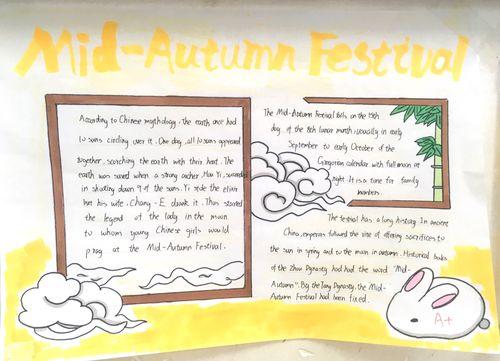 Mid-Autumn Festival
According to Chinese mythology, the earth once had
10 suns circling over it. One day, all 10 suns appeared
together, scorching the earth with their heat. The
earth was saved when a strong archer, Hou Yi, succeeded
in shooting down 9 of the suns. Yi stole the elixir
but his wife, Chang-E drank it. Thus started
the legend of the lady in the moon
to whom young Chinese girls would
pray at the Mid-Autumn Festival.
The Mid-Autumn Festival falls on the 15th
day of the 8th lunar month, usually in early
September to early October of the
Gregorian calendar with full moon at
night. It is a time for family
members.
The festival has a long history. In ancient
China, emperors followed the rite of offering sacrifices to
the sun in spring and to the moon in autumn. Historical books
of the Zhou Dynasty had had the word "Mid-
Autumn". By the Tang Dynasty, the Mid-
Autumn Festival had been fixed.
A+